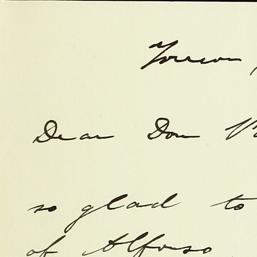 Dear Don
so glad to
of Alfonso